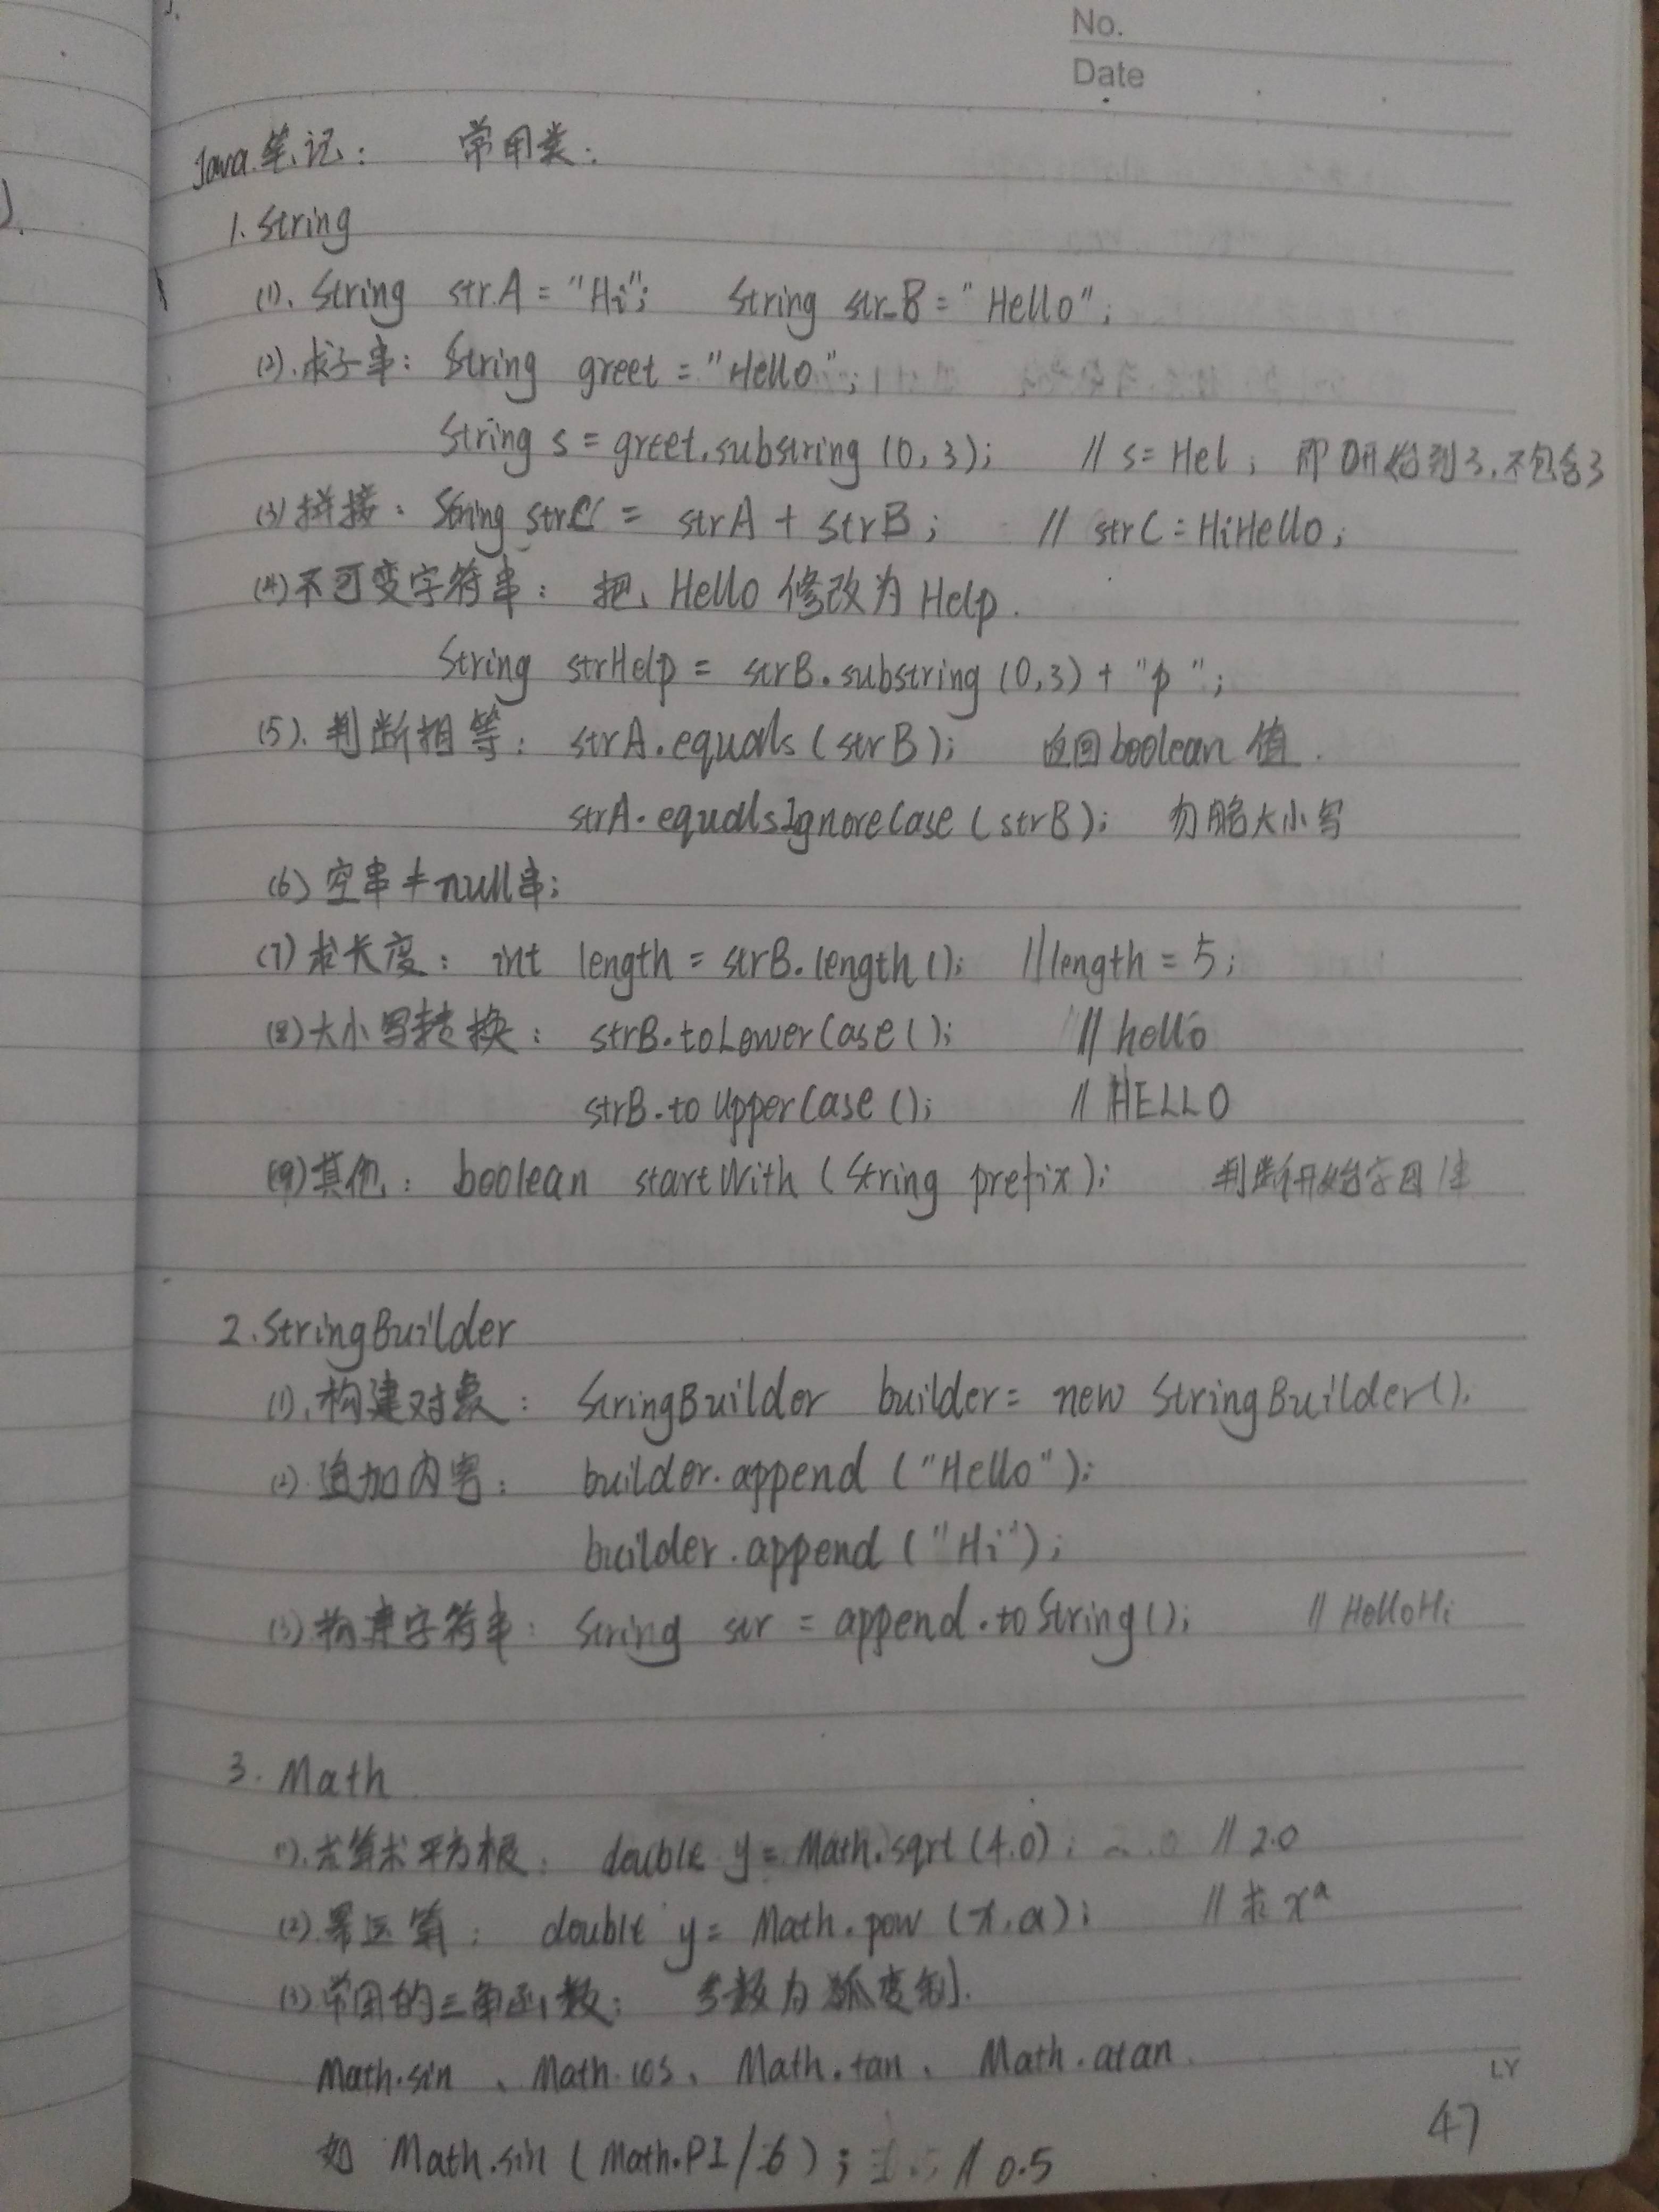 No.
Date
Java笔记： 常用类：
1. String
(1). String strA = "Hi"; String str_B = "Hello";
(2). 求子串： String greet = "Hello";
String s = greet.substring (0, 3); // s = Hel ; 即0开始到3，不包含3
(3) 拼接： String strC = strA + strB; // strC = HiHello;
(4) 不可变字符串： 把 Hello 修改为 Help.
String strHelp = strB.substring (0,3) + "p";
(5). 判断相等： strA.equals (strB); 返回boolean 值.
strA.equalsIgnoreCase (strB); 勿略大小写
(6) 空串≠null串;
(7) 求长度： int length = strB.length(); // length = 5;
(8) 大小写转换： strB.toLowerCase(); // hello
strB.toUpperCase(); // HELLO
(9) 其他： boolean startWith (String prefix); 判断开始字母/串
2. StringBuilder
(1). 构建对象： StringBuilder builder = new StringBuilder();
(2). 追加内容： builder.append ("Hello");
builder.append ("Hi");
(3) 构建字符串： String str = append.toString(); // HelloHi
3. Math
(1). 求算术平方根： double y = Math.sqrt (4.0); // 2.0
(2). 幂运算： double y = Math.pow (x, a); // 求 xᵃ
(3) 常用的三角函数： 参数为弧度制.
Math.sin 、 Math.cos 、 Math.tan 、 Math.atan.
如 Math.sin (Math.PI/6); // 0.5
LY
47